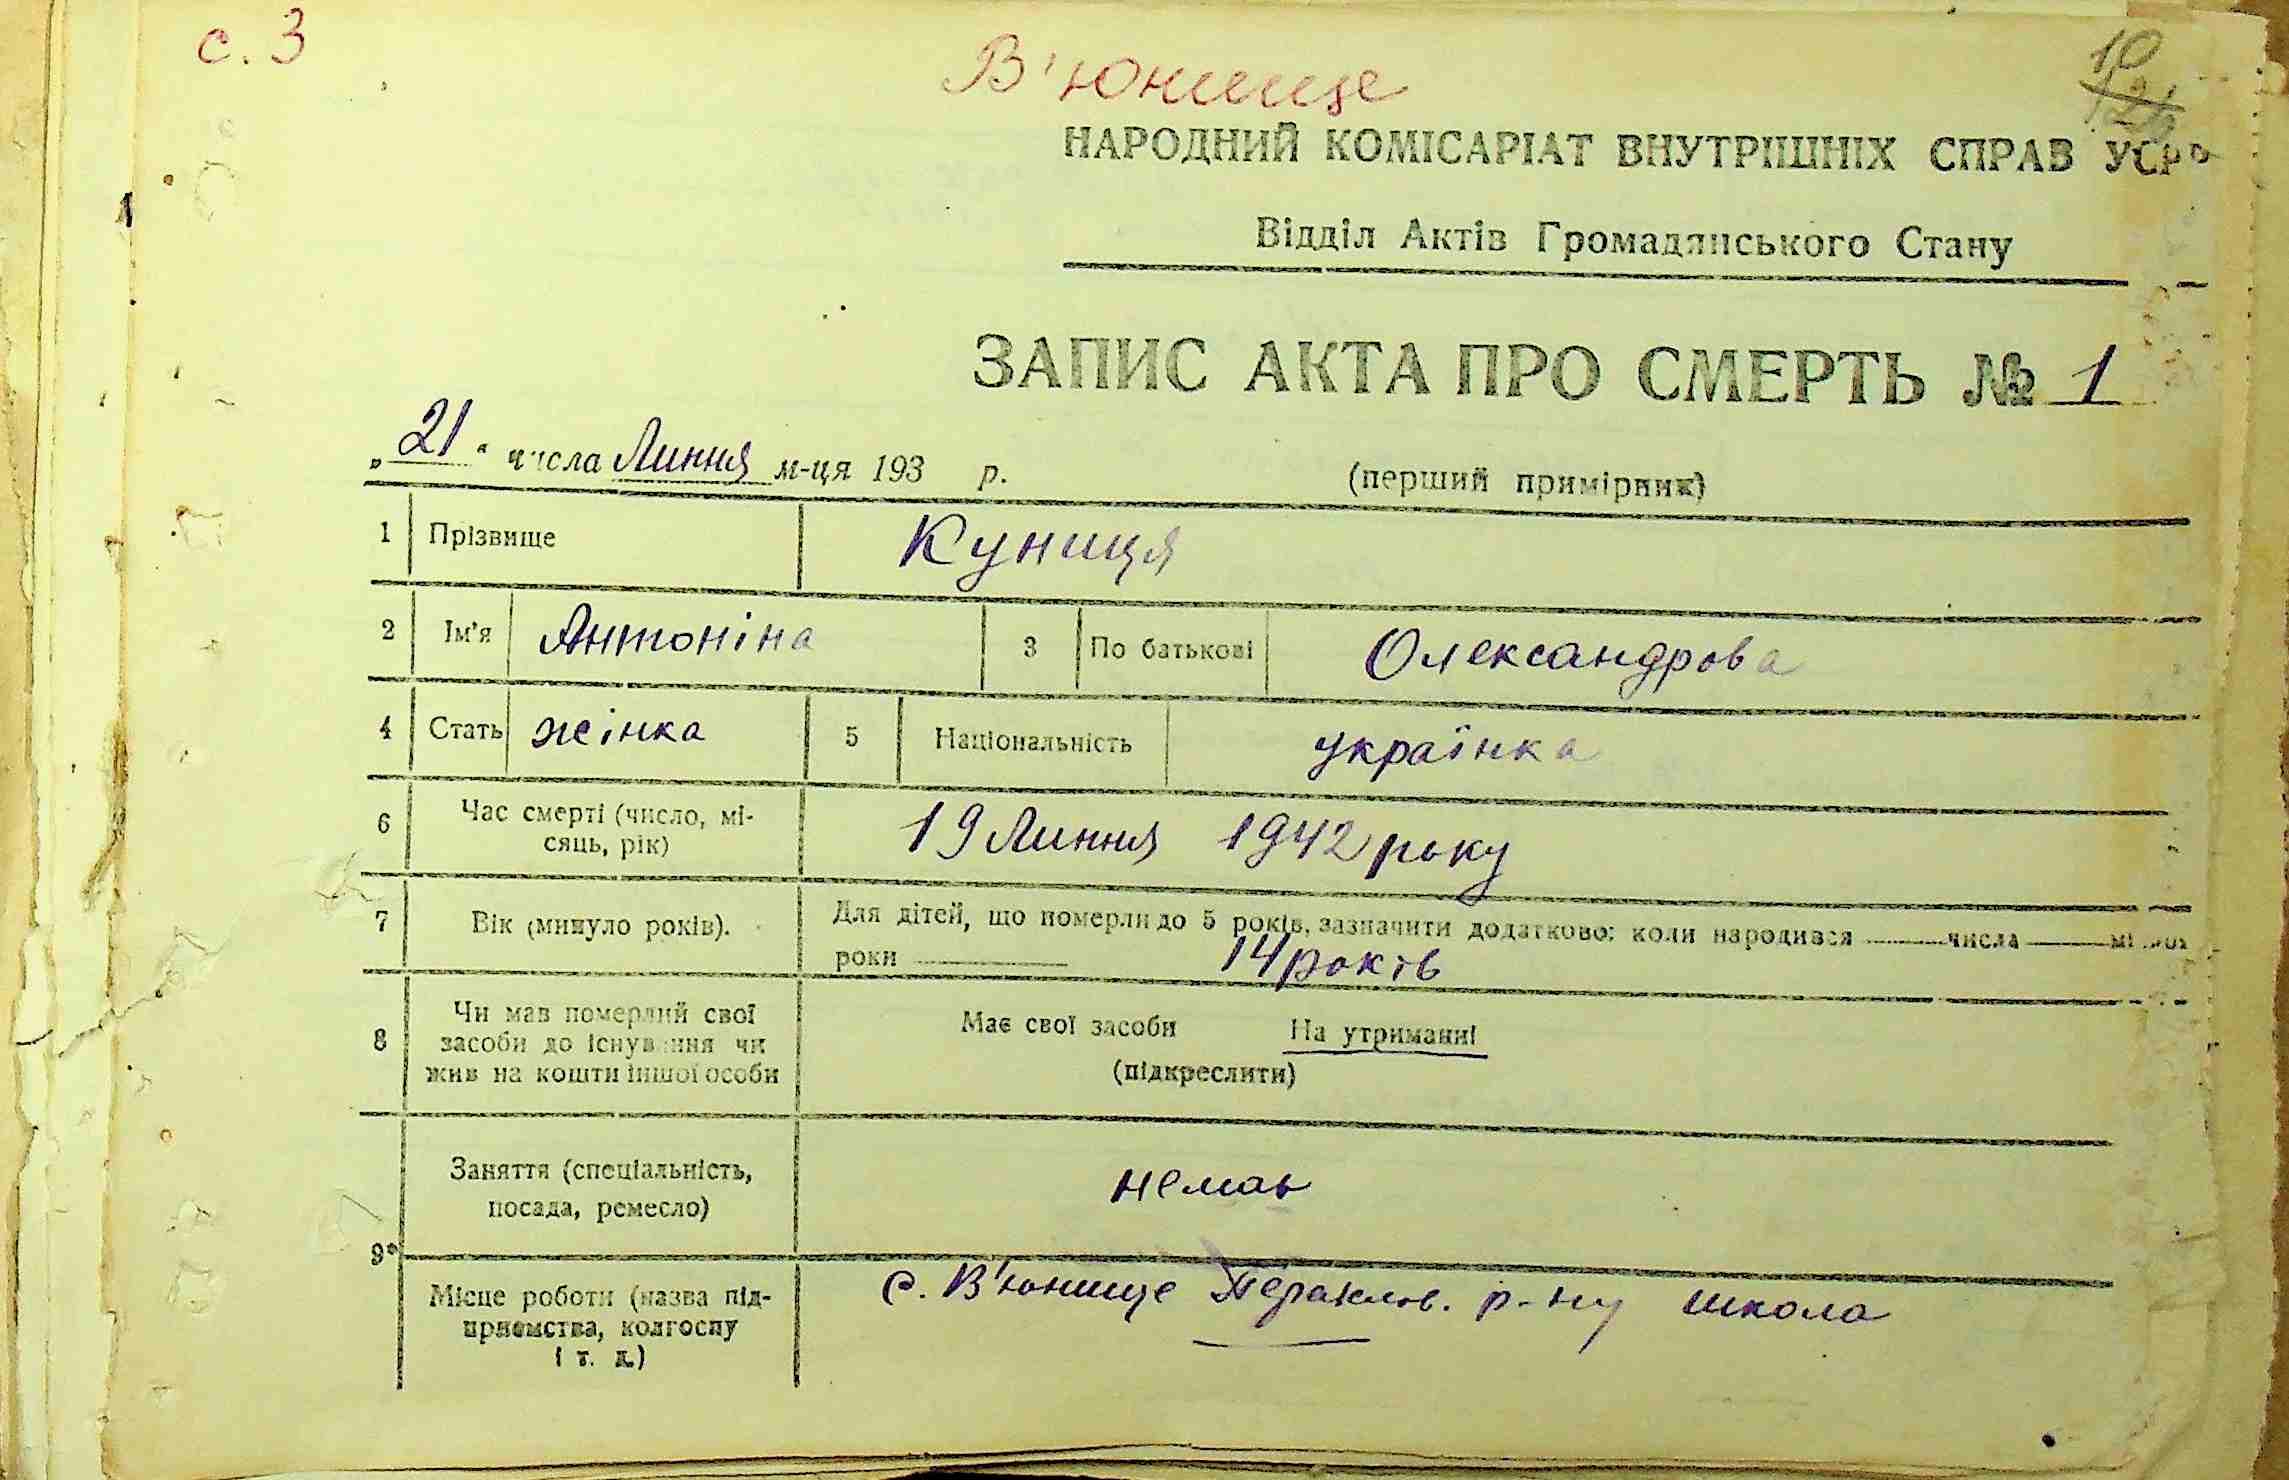 с. 3
В'юнище
10
НАРОДНИЙ КОМІСАРІАТ ВНУТРІШНІХ СПРАВ УСРР
Відділ Актів Громадянського Стану
ЗАПИС АКТА ПРО СМЕРТЬ № 1
„21“ числа Липня м-ця 193 р. (перший примірник)
1 Прізвище Куниця
2 Ім'я Антоніна 3 По батькові Олександрова
4 Стать жінка 5 Національність українка
6 Час смерті (число, мі-
сяць, рік) 19 Липня 1942 року
7 Вік (минуло років). Для дітей, що померли до 5 років, зазначити додатково: коли народився числа
роки 14 років
8 Чи мав померлий свої
засоби до існування чи
жив на кошти іншої особи
Має свої засоби На утриманні
(підкреслити)
9 Заняття (спеціальність,
посада, ремесло) немає
Місце роботи (назва під-
приємства, колгоспу
і т. д.)
с. В'юнище р-ну школа